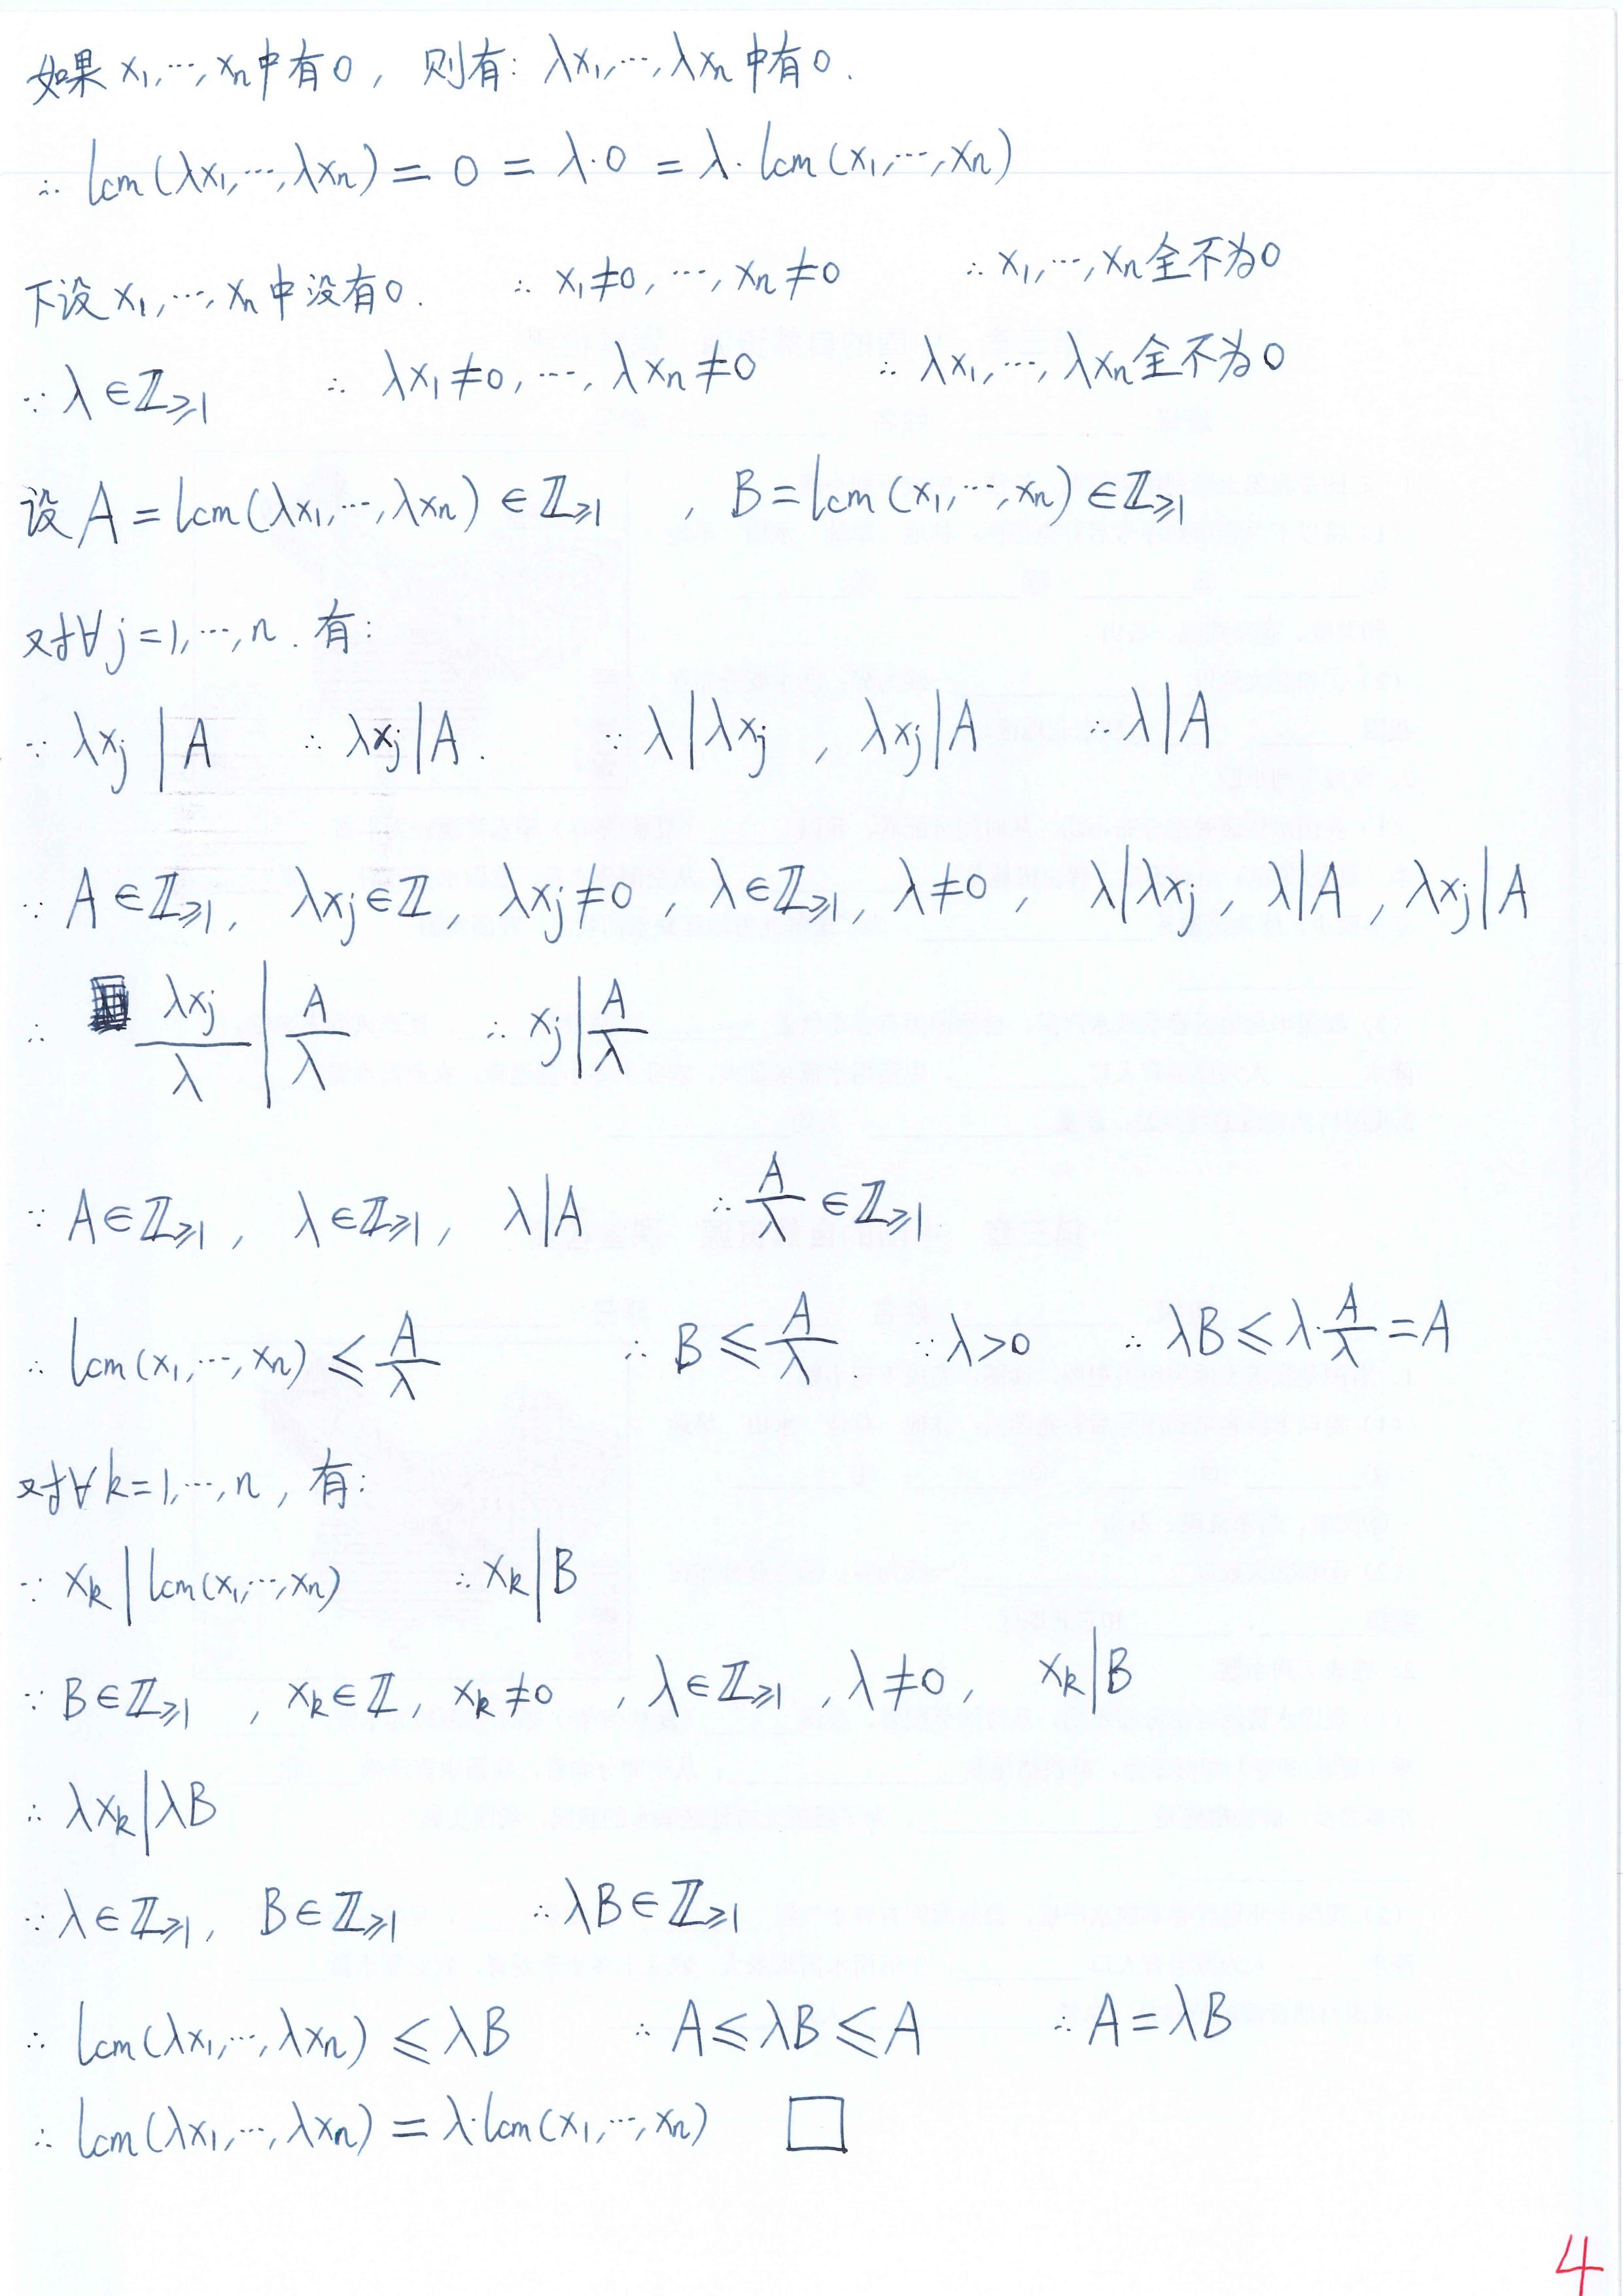 如果 x₁,⋯,xₙ中有0, 则有: λx₁,⋯,λxₙ中有0.
∴ lcm(λx₁,⋯,λxₙ) = 0 = λ·0 = λ·lcm(x₁,⋯,xₙ)
下设 x₁,⋯,xₙ中没有0. ∴ x₁≠0,⋯,xₙ≠0 ∴ x₁,⋯,xₙ全不为0
∵ λ∈ℤ⩾₁ ∴ λx₁≠0,⋯,λxₙ≠0 ∴ λx₁,⋯,λxₙ全不为0
设 A = lcm(λx₁,⋯,λxₙ) ∈ℤ⩾₁ , B = lcm(x₁,⋯,xₙ) ∈ℤ⩾₁
对∀j=1,⋯,n. 有:
∵ λxⱼ | A ∴ λxⱼ | A. ∵ λ | λxⱼ , λxⱼ | A ∴ λ | A
∵ A∈ℤ⩾₁, λxⱼ∈ℤ, λxⱼ≠0, λ∈ℤ⩾₁, λ≠0, λ | λxⱼ, λ | A, λxⱼ | A
∴ λxⱼ/λ | A/λ ∴ xⱼ | A/λ
∵ A∈ℤ⩾₁, λ∈ℤ⩾₁, λ | A ∴ A/λ ∈ℤ⩾₁
∴ lcm(x₁,⋯,xₙ) ⩽ A/λ ∴ B ⩽ A/λ ∵ λ>0 ∴ λB ⩽ λ·A/λ = A
对∀k=1,⋯,n, 有:
∵ xₖ | lcm(x₁,⋯,xₙ) ∴ xₖ | B
∵ B∈ℤ⩾₁, xₖ∈ℤ, xₖ≠0, λ∈ℤ⩾₁, λ≠0, xₖ | B
∴ λxₖ | λB
∵ λ∈ℤ⩾₁, B∈ℤ⩾₁ ∴ λB∈ℤ⩾₁
∴ lcm(λx₁,⋯,λxₙ) ⩽ λB ∴ A⩽λB⩽A ∴ A = λB
∴ lcm(λx₁,⋯,λxₙ) = λ·lcm(x₁,⋯,xₙ) □
4